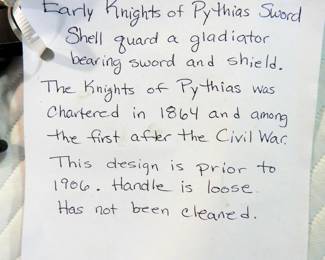 Early Knights of Pythias Sword
Shell guard a gladiator
bearing sword and shield.
The Knights of Pythias was
chartered in 1864 and among
the first after the Civil War.
This design is prior to
1906. Handle is loose
Has not been cleaned.